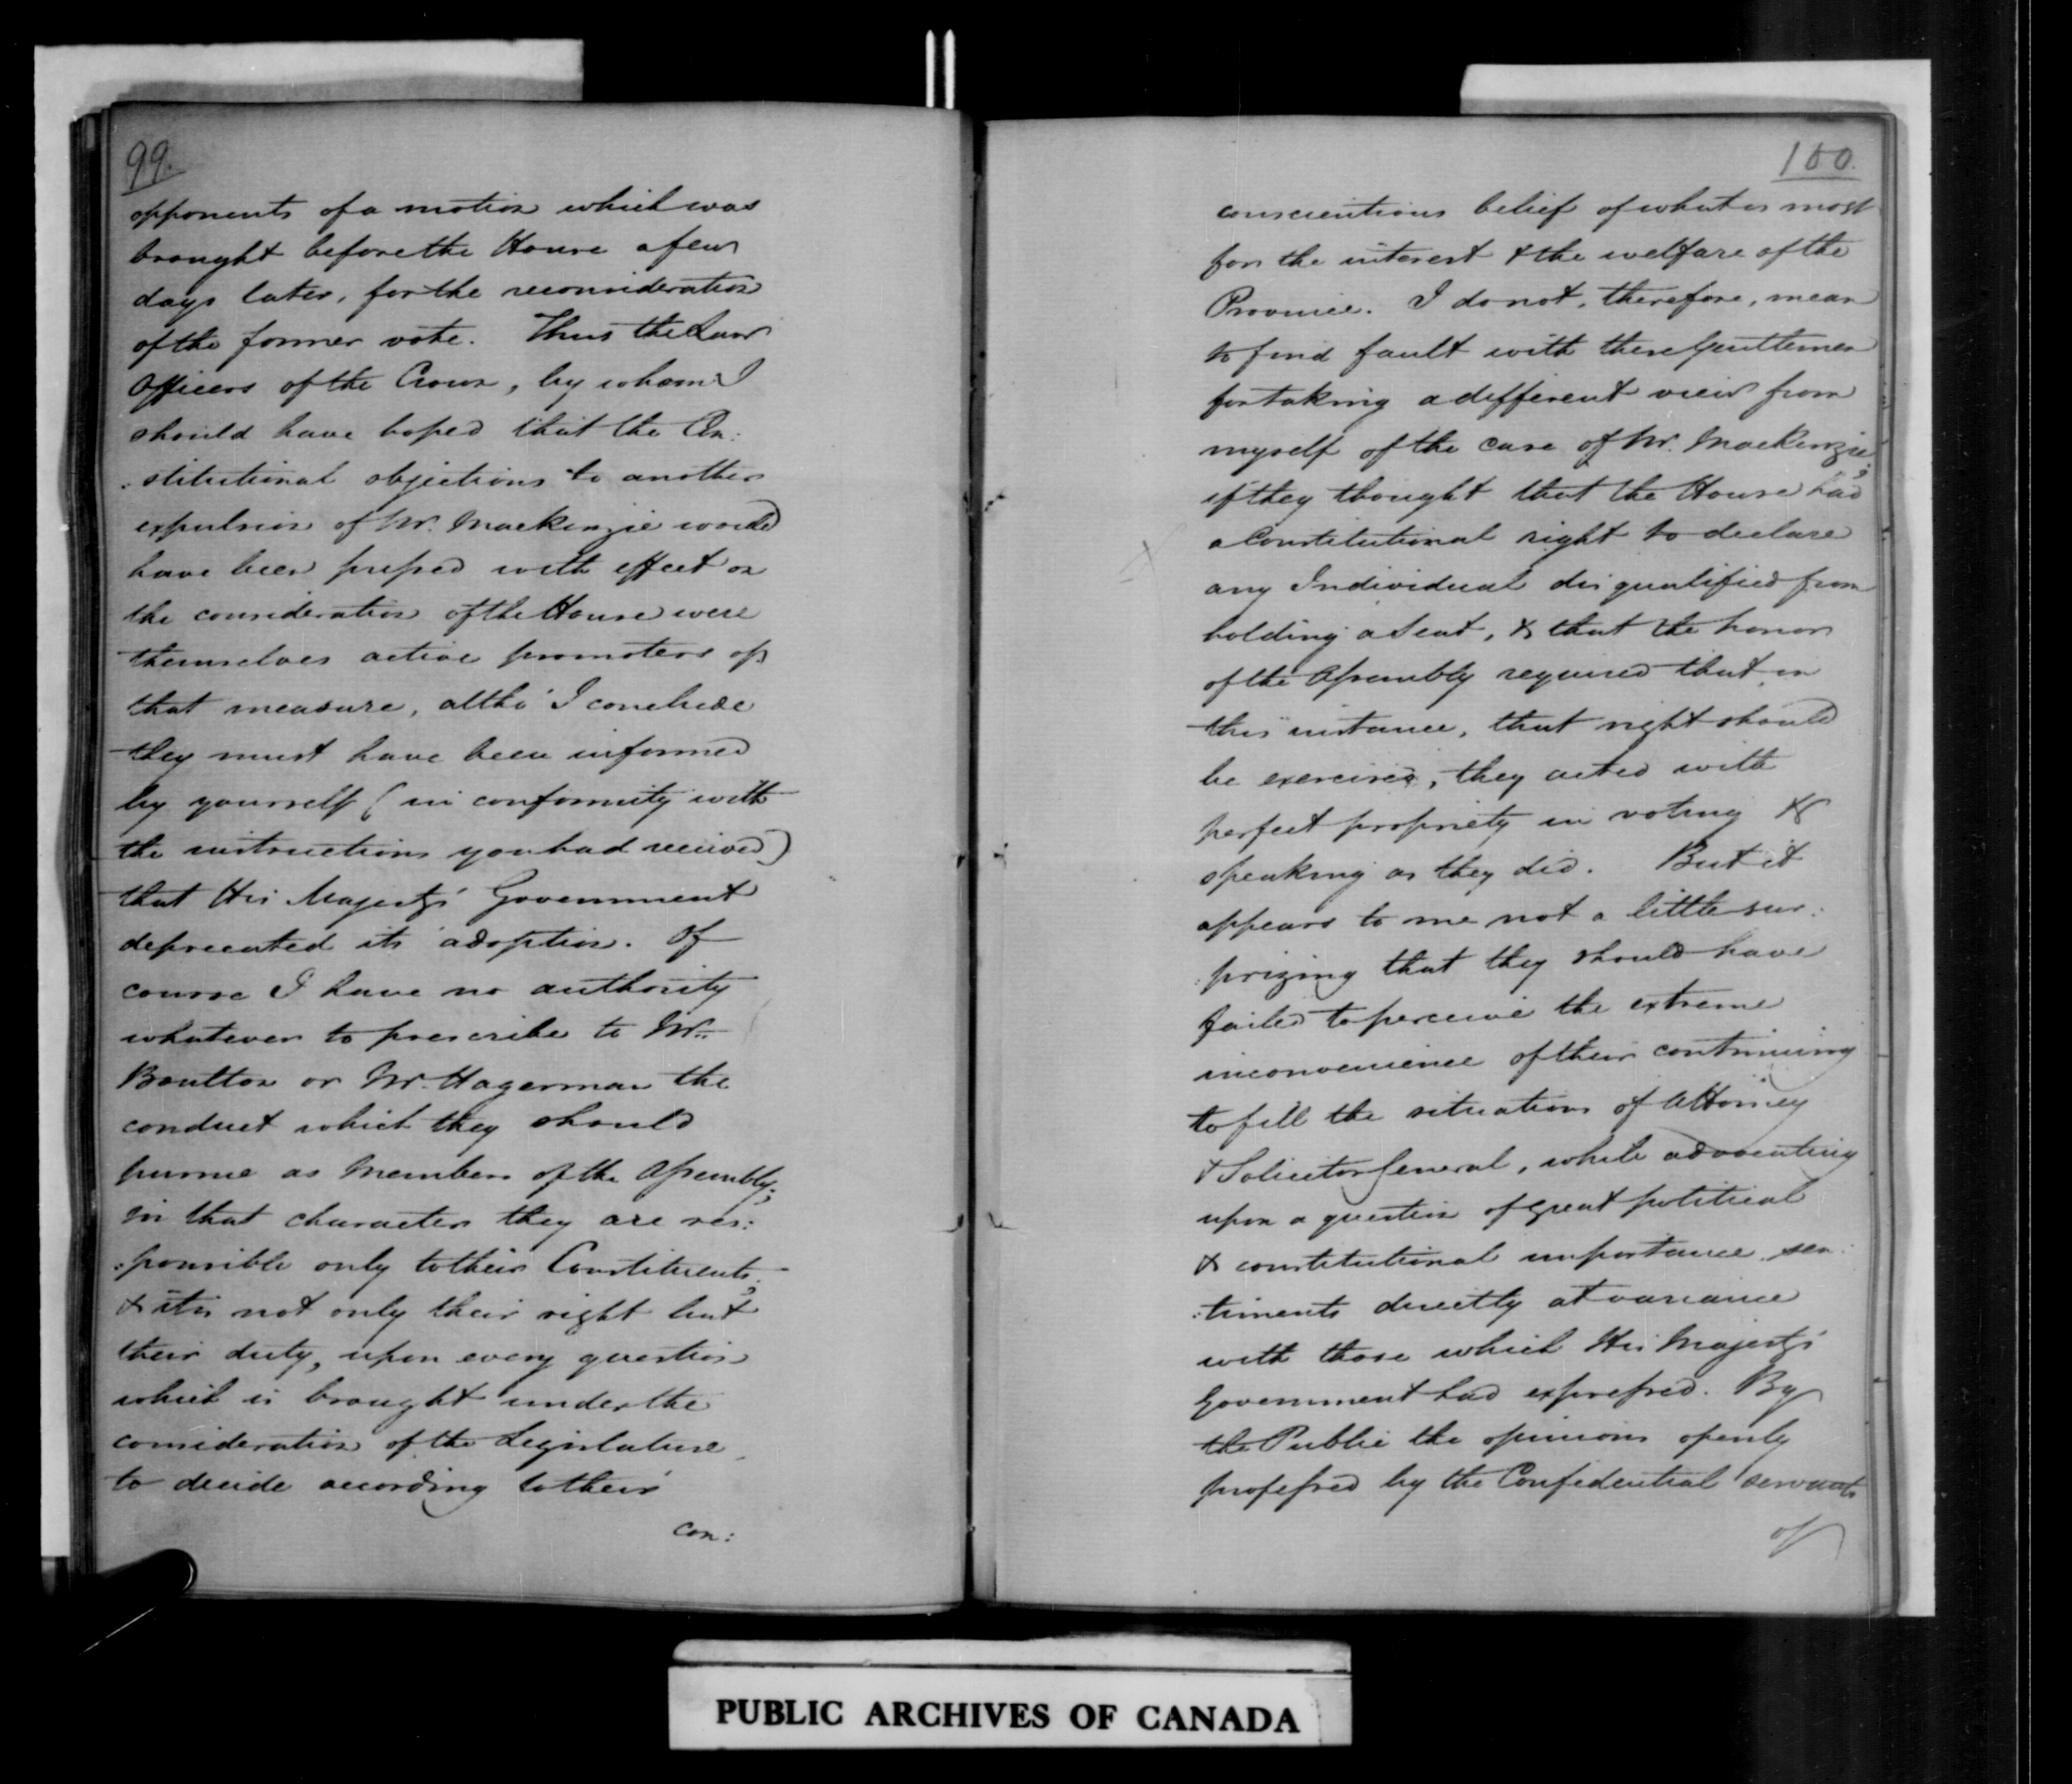 99.
opponents of a motion which was
brought before the House a few
days later, for the reconsideration
of the former vote. Thus the Law
Officers of the Crown, by whom I
should have hoped that the Con:
:stitutional objections to another
expulsion of Mr. Mackenzie would
have been pressed with effect on
the consideration of the House were
themselves active promoters of
that measure, altho' I conclude
they must have been informed
by yourself (in conformity with
the instructions you had received)
that His Majesty's Government
deprecated its adoption. Of
course I have no authority
whatever to prescribe to Mr.
Boulton or Mr. Hagerman the
conduct which they should
pursue as Members of the Assembly;
in that character they are res:
:ponsible only to their Constituents;
& it is not only their right but
their duty, upon every question
which is brought under the
consideration of the Legislature
to decide according to their
con:
100.
conscientious belief of what is most
for the interest & the welfare of the
Province. I do not, therefore, mean
to find fault with these Gentlemen
for taking a different view from
myself of the case of Mr. MacKenzie;
if they thought that the House had
a Constitutional right to declare
any Individual disqualified from
holding a Seat, & that the honor
of the Assembly required that in
this instance, that right should
be exercised, they acted with
perfect propriety in voting &
speaking as they did. But it
appears to me not a little sur:
:prizing that they should have
failed to perceive the extreme
inconvenience of their continuing
to fill the situations of Attorney
& Solicitor General, while advocating
upon a question of great political
& constitutional importance sen:
:timents directly at variance
with those which His Majesty's
Government had expressed. By
the Public the opinions openly
professed by the Confidential servants
of
PUBLIC ARCHIVES OF CANADA